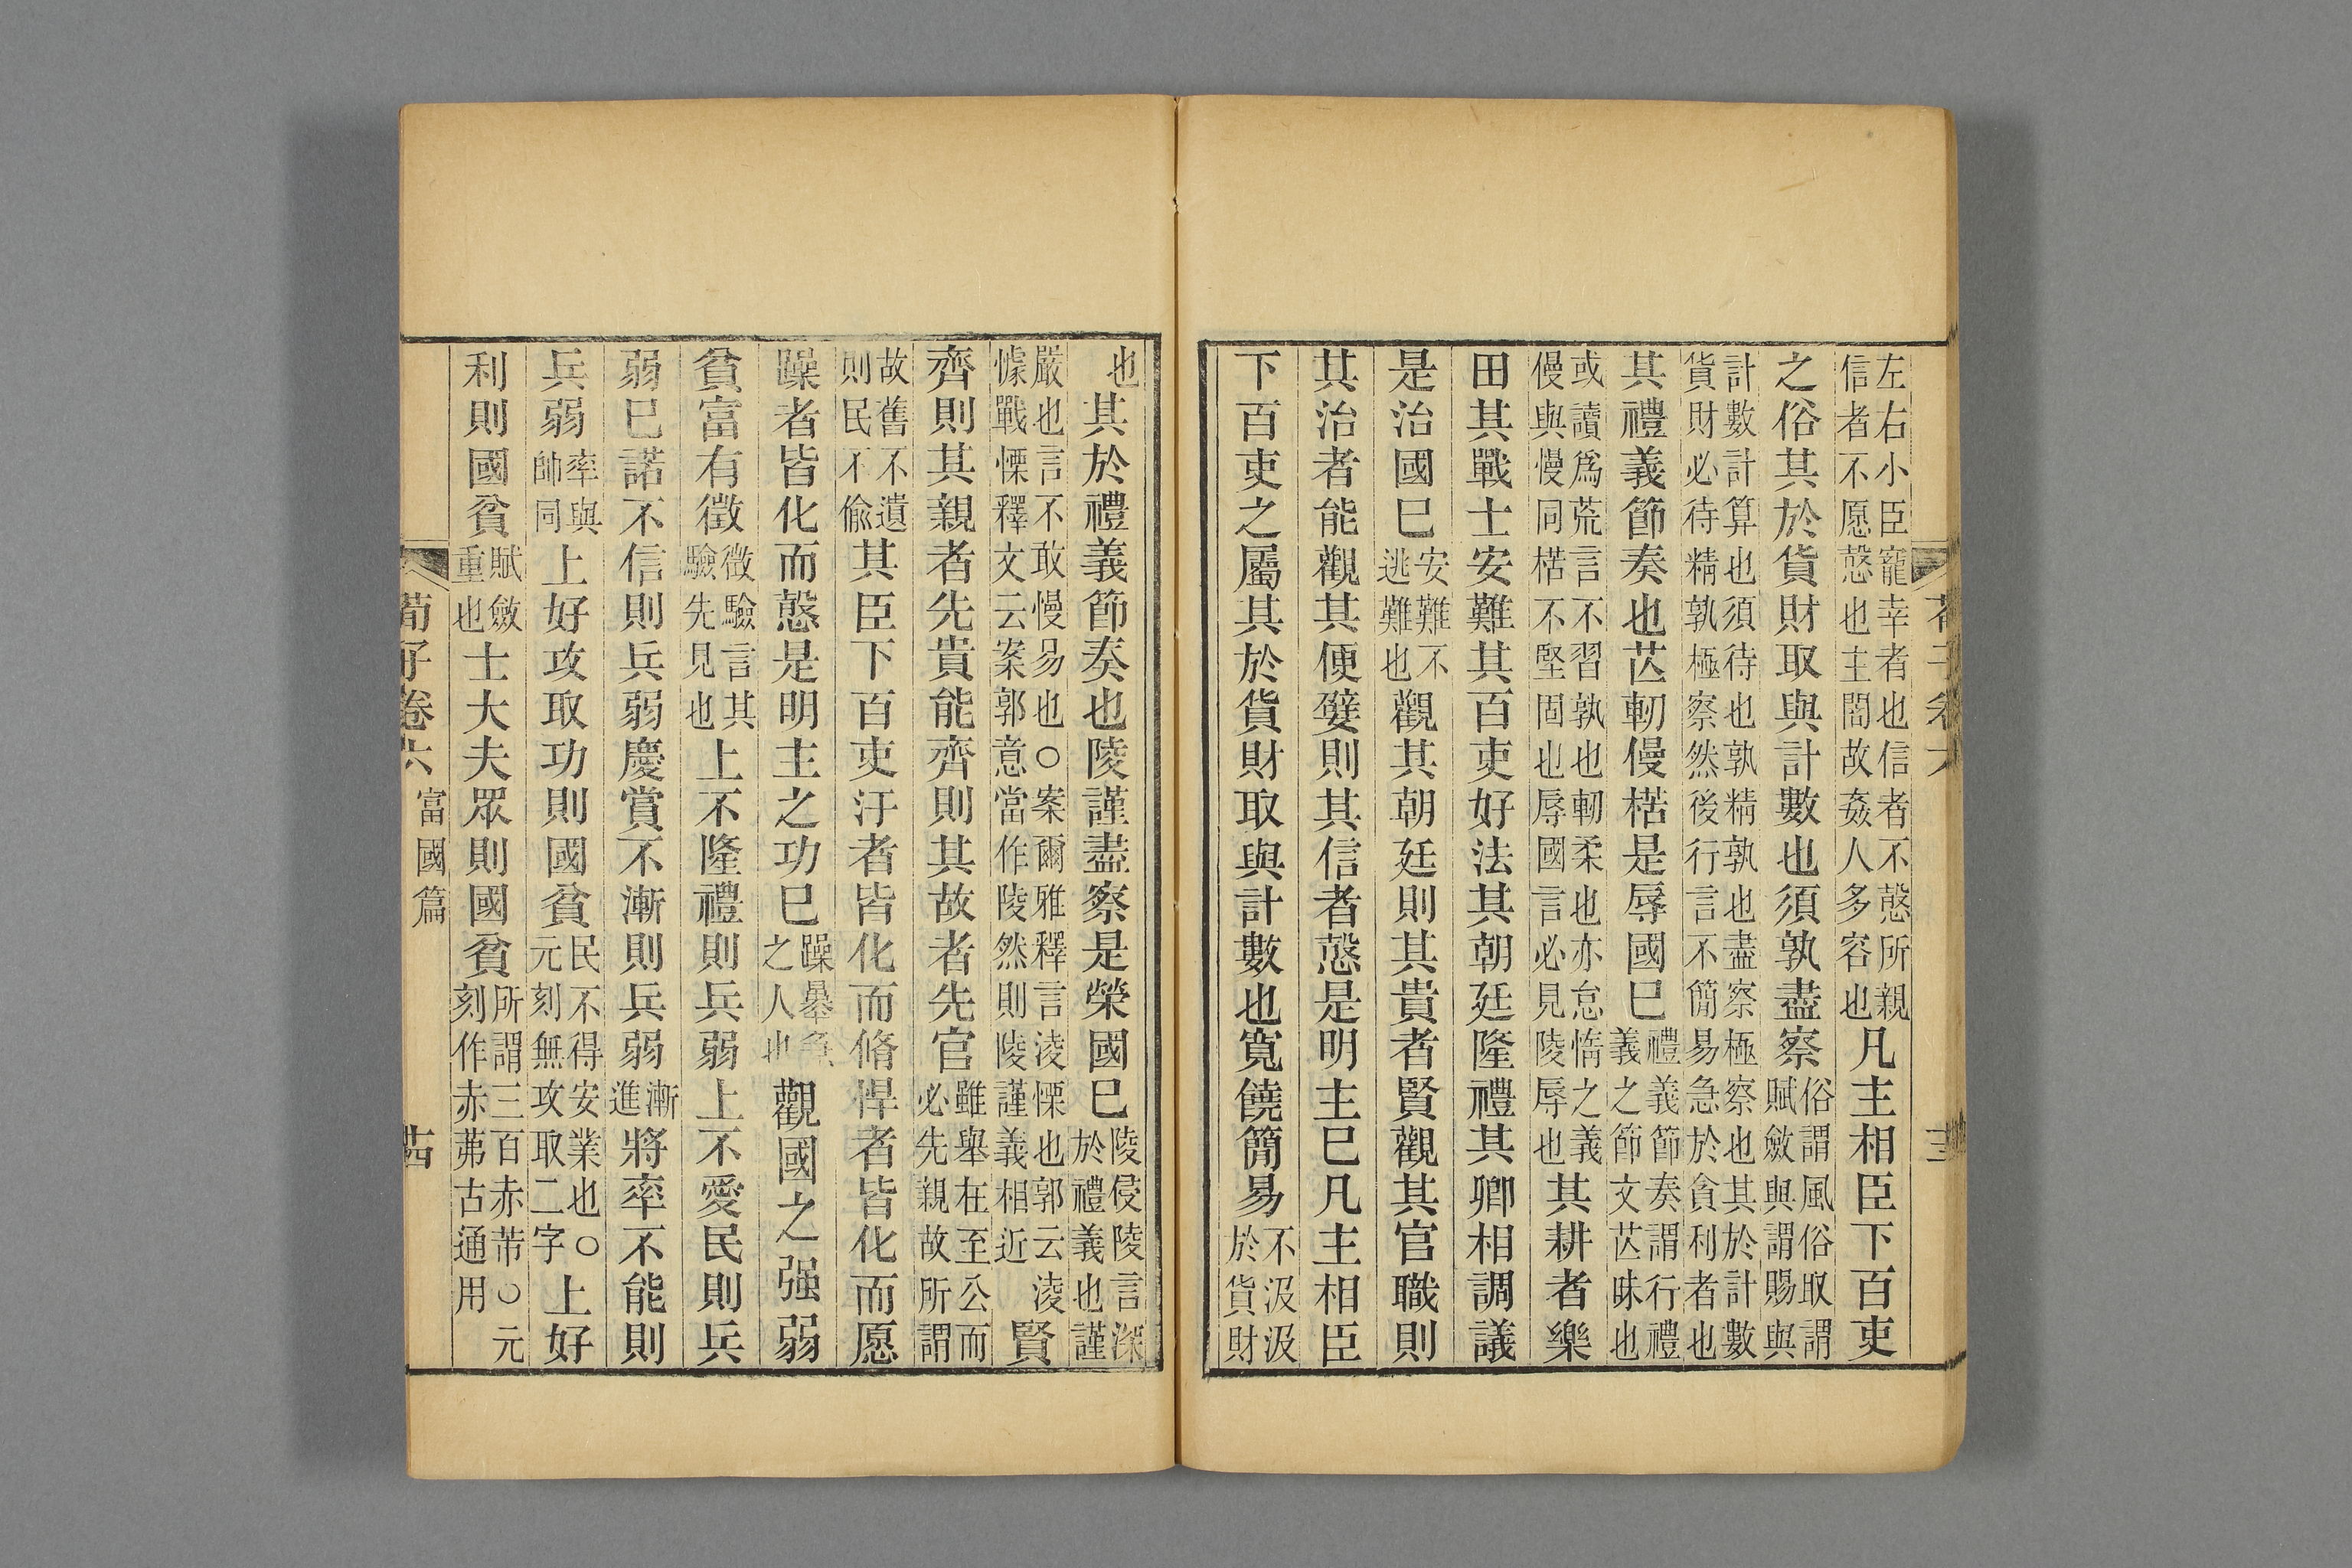 左右小臣寵幸者也信者不愨所親信者不愿愨也主闇故姦人多容也凡主相臣下百吏
之俗其於貨財取與計數也須孰盡察俗謂風俗取謂賦斂與謂賜與
計數計算也須待也孰精孰也盡察極察也其於計數貨財必待精孰極察然後行言不簡易急於貪利者也
其禮義節奏也芒軔僈楛是辱國已禮義節奏謂行禮義之節文芒昧也
或讀爲荒言不習孰也軔柔也亦怠惰之義僈與慢同楛不堅固也辱國言必見陵辱也其耕者樂
田其戰士安難其百吏好法其朝廷隆禮其卿相調議
是治國已安難不逃難也觀其朝廷則其貴者賢觀其官職則
其治者能觀其便嬖則其信者愨是明主已凡主相臣
下百吏之屬其於貨財取與計數也寬饒簡易不汲汲於貨財
也其於禮義節奏也陵謹盡察是榮國已陵侵陵言深於禮義也謹
嚴也言不敢慢易也○案爾雅釋言淩慄也郭云淩懅戰慄釋文云案郭意當作陵然則陵謹義相近賢
齊則其親者先貴能齊則其故者先官雖舉在至公而必先親故所謂
故舊不遺則民不偷其臣下百吏汙者皆化而脩悍者皆化而愿
躁者皆化而愨是明主之功已躁暴急之人也觀國之强弱
貧富有徵徵驗言其驗先見也上不隆禮則兵弱上不愛民則兵
弱已諾不信則兵弱慶賞不漸則兵弱漸進將率不能則
兵弱率與帥同上好攻取功則國貧民不得安業也○元刻無攻取二字上好
利則國貧賦斂重也士大夫眾則國貧所謂三百赤芾○元刻作赤茀古通用
荀子卷六 富國篇 十四